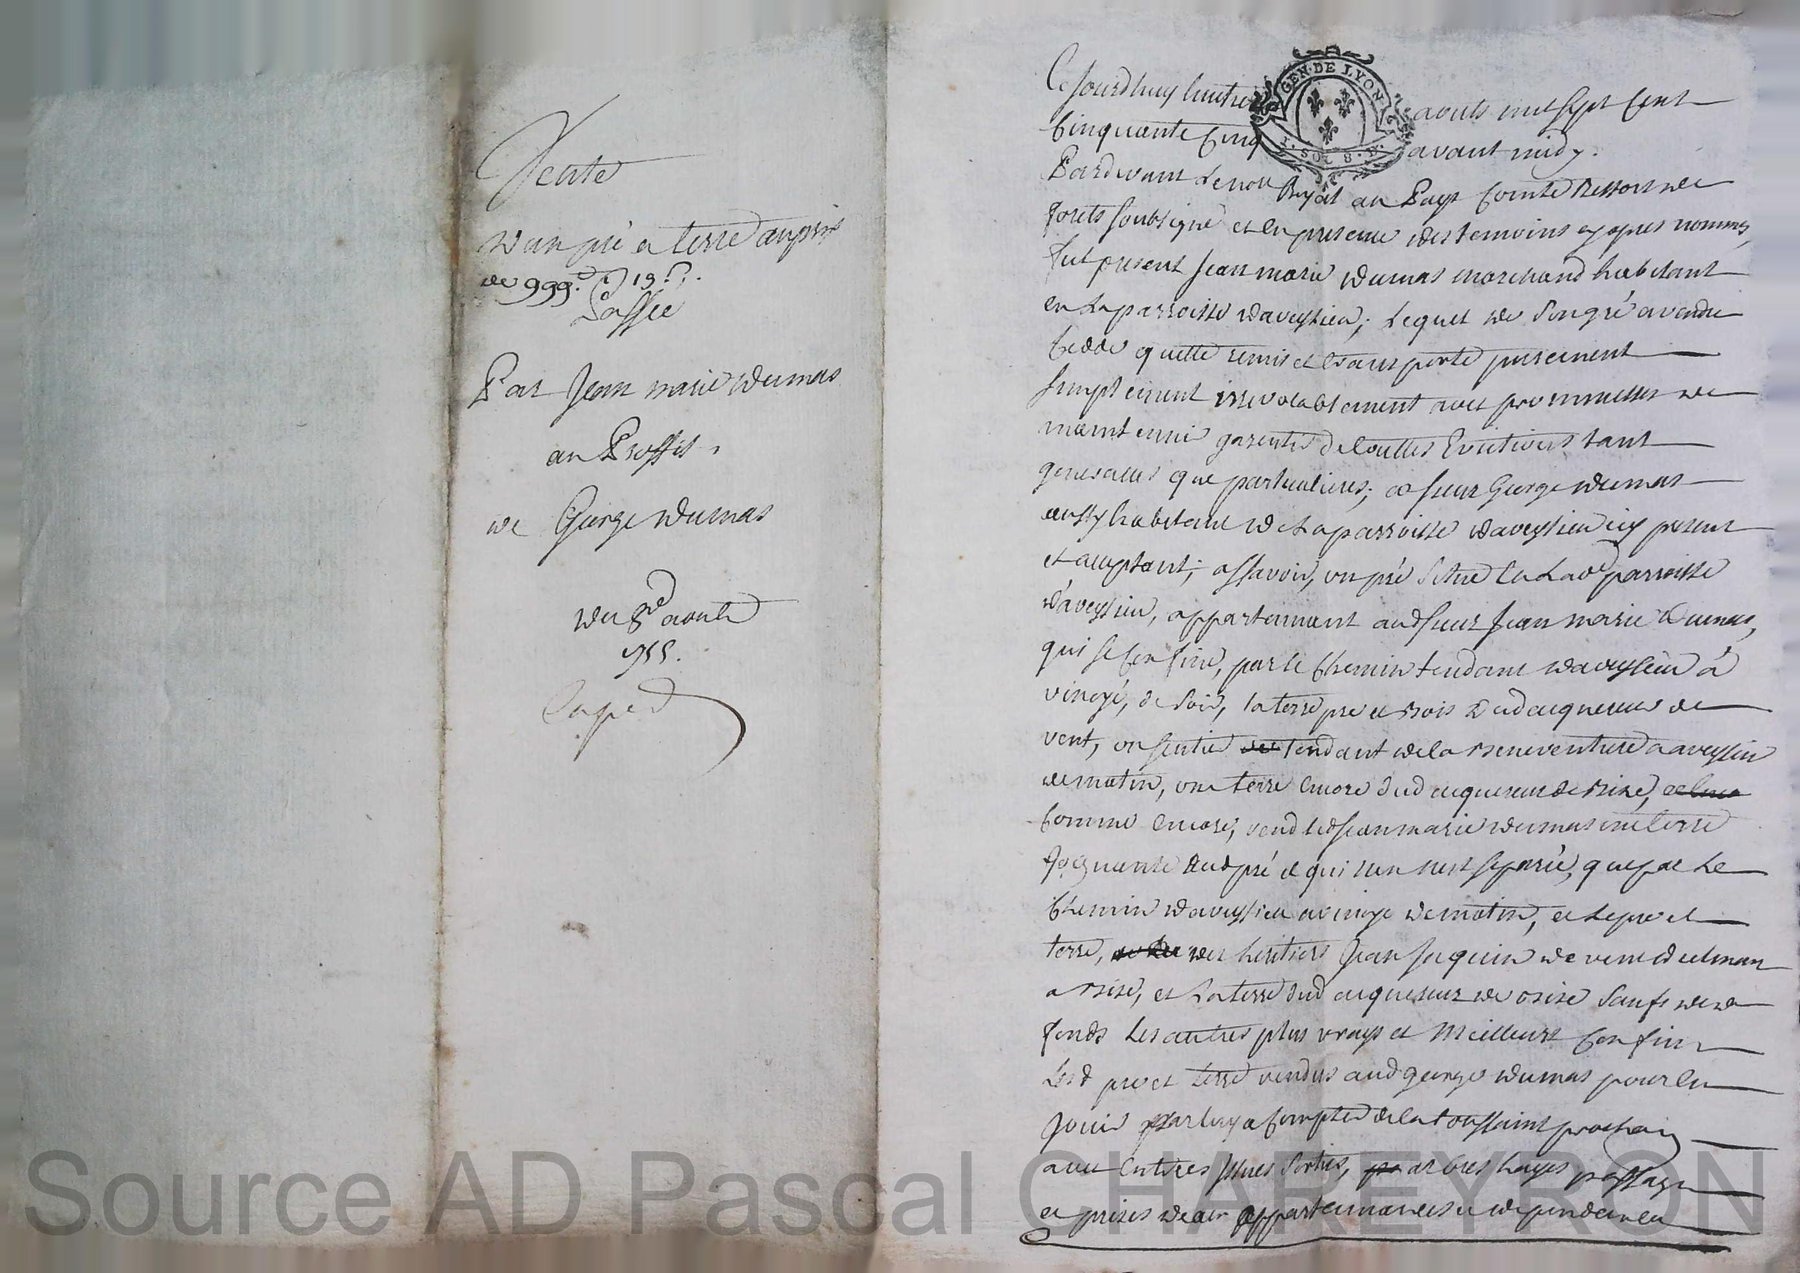 Vente
d'un pré et terre au prix
de 999.lt 19.s.
Passée
Par Jean marie Dumas
au Proffit
de George Dumas
du 8e aoust
755.
Exped
GEN. DE LYON
1. SOL 8. D.
Ce Jourdhuy huitie aouts mil sept Cent
Cinquante Cinq avant midy.
Pardevant Le no.re Royal au Pays Comté Ressort de
forets soubsigné et en presence des temoins cy apres nommés
fut present Jean marie Dumas marchand habitant
en La parroisse daveysieu; Lequel de son gré a vendu
Cedde quitte remis et transporté purement
simplement irrevocablement avec prommesses de
maintenir garentir de touttes Evictions tant
generalles que particulieres; a sieur George Dumas
aussy habitant de La parroisse daveysieu icy present
et acceptant; assavoir, un pré situé en Lad. parroisse
d'aveysieu, appartennant aud sieur Jean marie Dumas,
qui se Confine, par le Chemin tendant daveysieu à
vinoyé, de soir, la terre pre et bois dud acquereur de
vent, un sentier tendant de la Beneventure a aveysieu
de matin, une terre encore dud acquereur de bize,
Comme encore, vend led Jean marie Dumas une terre
Joignante aud pré et qui n'en n'est separée, que par Le
Chemin daveysieu a vinoye de matin, et Le pre et
terre, des heritiers Jean Jaquin de vent
a bize, et La terre dud acquereur de bise sauf
fonds Les autres plus vrays et Meilleurs Confins
Lesd pre et terre vendus aud george Dumas pour en
Jouir par luy a Compter de la toussaint prochain
avec Entrées issues sorties, arbres hayes passage
et prises deau appartenances et dependances
Source AD Pascal CHAREYRON